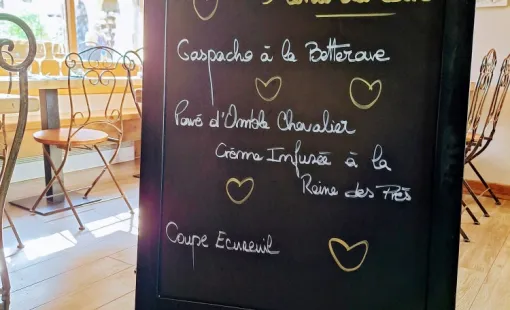 Gaspacho à la Betterave
Pavé d'Omble Chevalier
Crème Infusée à la
Reine des Prés
Coupe Ecureuil